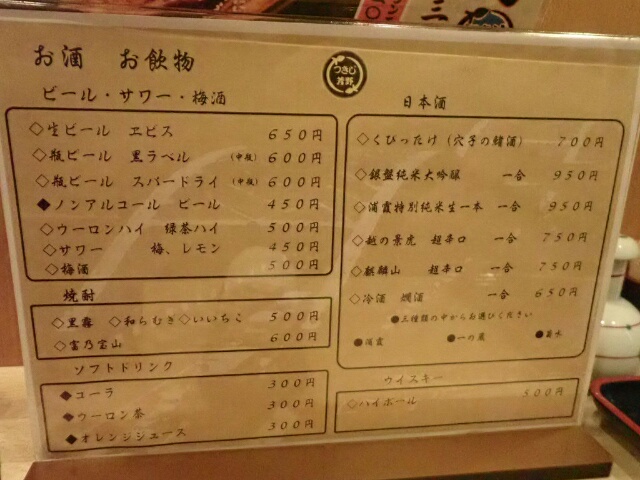 お酒 お飲物
つきじ
芳野
ビール・サワー・梅酒
◇生ビール ヱビス 650円
◇瓶ビール 黒ラベル (中瓶) 600円
◇瓶ビール スパードライ (中瓶) 600円
◆ノンアルコール ビール 450円
◇ウーロンハイ 緑茶ハイ 500円
◇サワー 梅、レモン 450円
◇梅酒 500円
焼酎
◇黒霧 ◇和らむぎ◇いいちこ 500円
◇富乃宝山 600円
ソフトドリンク
◆コーラ 300円
◆ウーロン茶 300円
◆オレンジジュース 300円
日本酒
◇くびったけ(穴子の鰭酒) 700円
◇銀盤純米大吟醸 一合 950円
◇浦霞特別純米生一本 一合 950円
◇越の景虎 超辛口 一合 750円
◇麒麟山 超辛口 一合 750円
◇冷酒 燗酒 一合 650円
●三種類の中からお選びください
●浦霞 ●一の蔵 ●
ウイスキー
◇ハイボール 500円